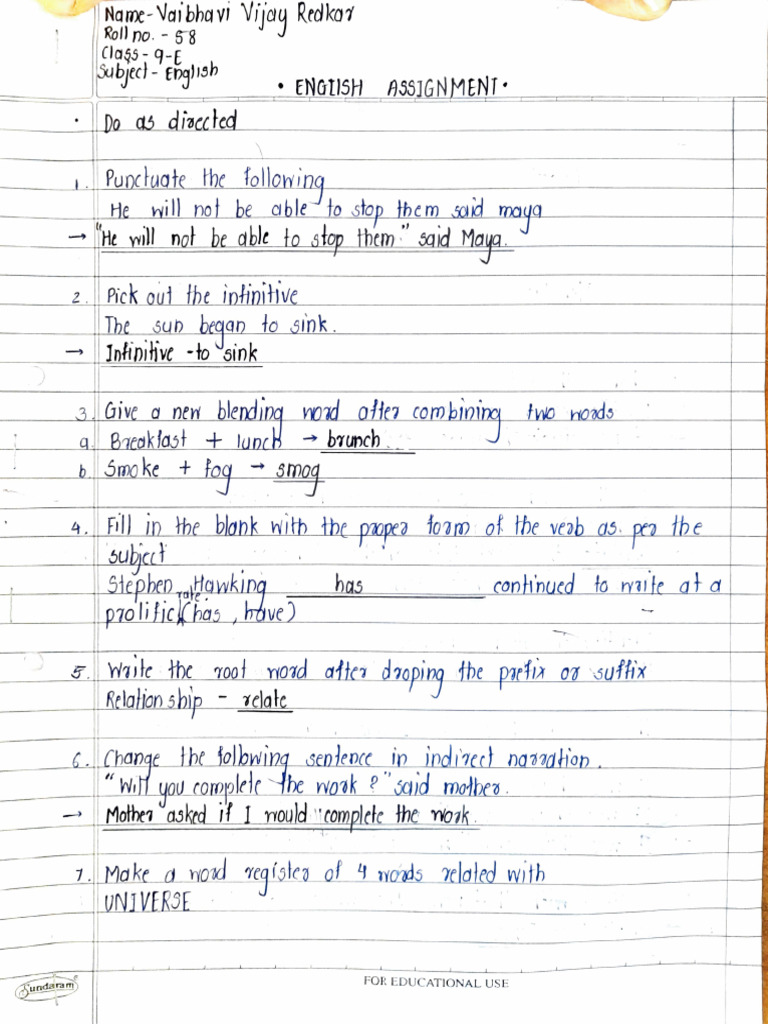 Name-Vaibhavi Vijay Redkar
Roll no. - 58
Class - 9-E
Subject - English
• ENGlISH ASSIGNMENT •
• Do as directed
1. Punctuate the following
He will not be able to stop them said maya
→ "He will not be able to stop them." said Maya.
2. Pick out the infinitive
The sun began to sink.
→ Infinitive - to sink
3. Give a new blending word after combining two words
a. Breakfast + lunch → brunch
b. Smoke + fog → smog
4. Fill in the blank with the proper form of the verb as per the
subject
Stephen Hawking has continued to write at a
prolific rate. (has, have)
5. Write the root word after droping the prefix or suffix
Relationship - relate
6. Change the following sentence in indirect narration.
"Will you complete the work?" said mother.
→ Mother asked if I would complete the work.
7. Make a word register of 4 words related with
UNIVERSE
Sundaram
FOR EDUCATIONAL USE